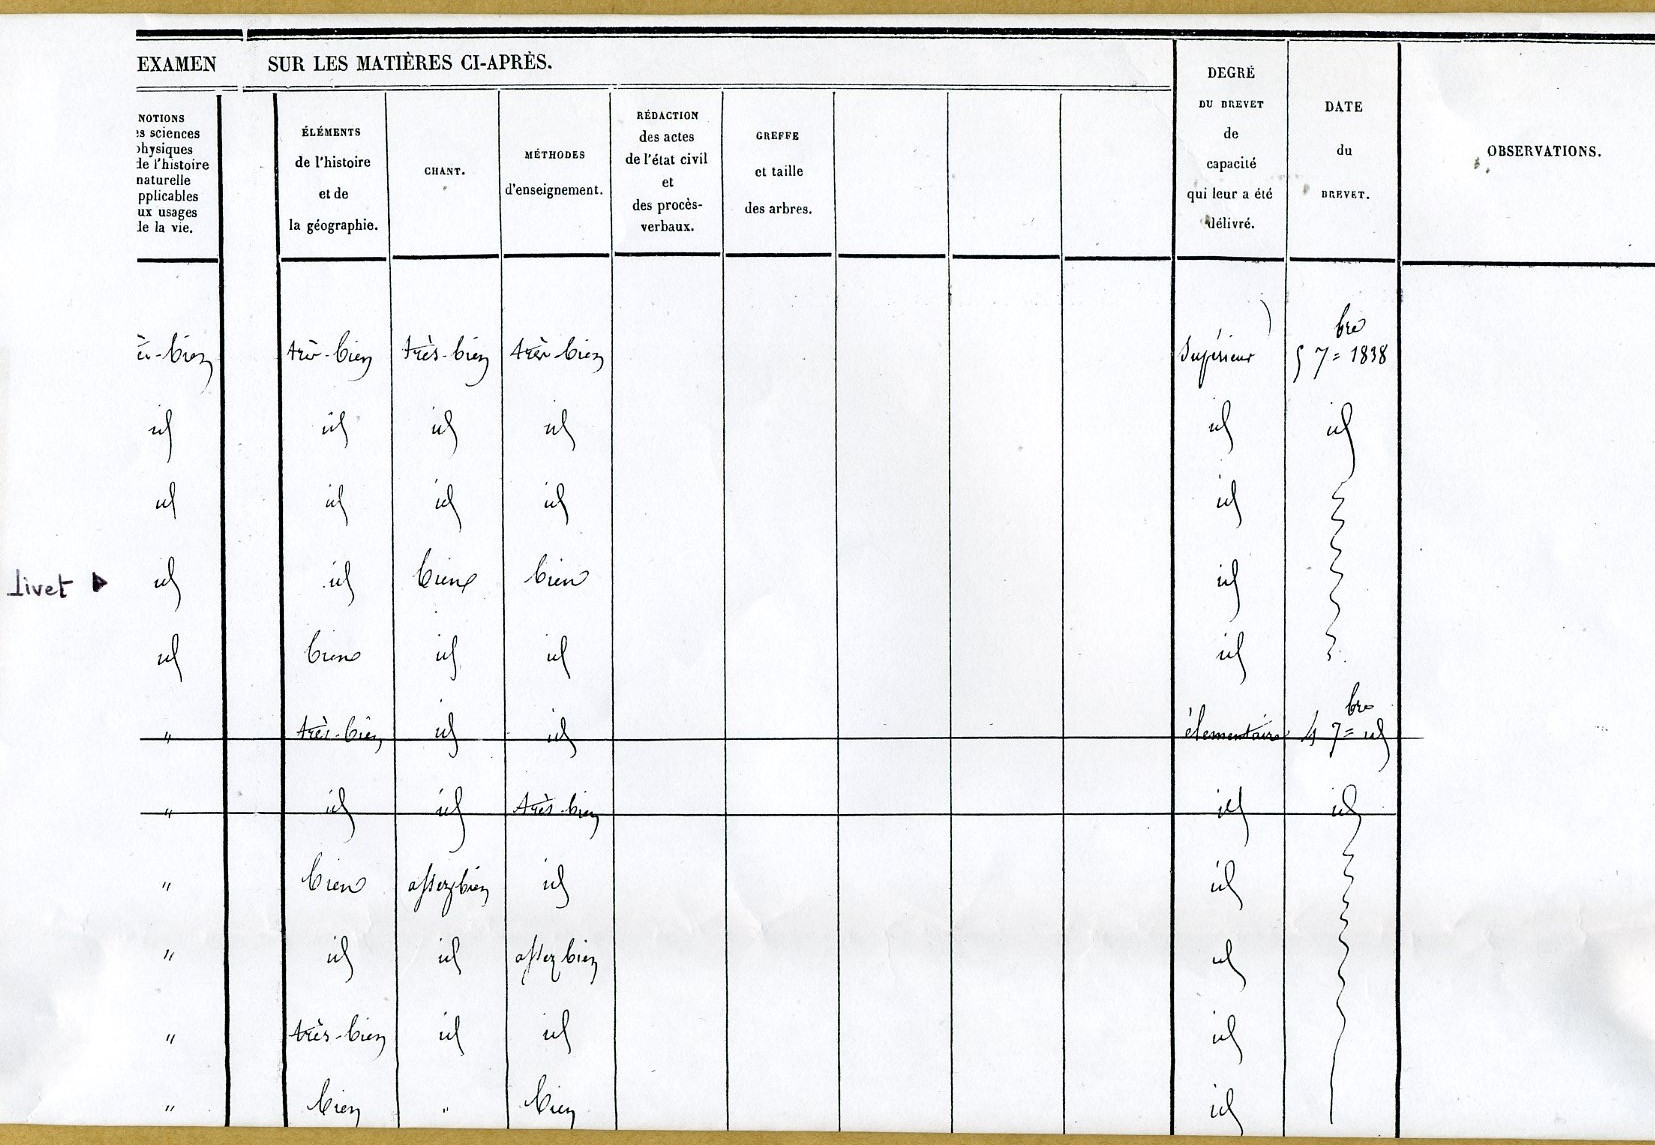 EXAMEN SUR LES MATIÈRES CI-APRÈS.
NOTIONS
es sciences
physiques
de l'histoire
naturelle
pplicables
ux usages
de la vie.
ÉLÉMENTS
de l'histoire
et de
la géographie.
CHANT.
MÉTHODES
d'enseignement.
RÉDACTION
des actes
de l'état civil
et
des procès-
verbaux.
GREFFE
et taille
des arbres.
DEGRÉ
DU BREVET
de
capacité
qui leur a été
délivré.
DATE
du
BREVET.
OBSERVATIONS.
-bien très-bien très-bien très-bien Supérieur 5 7bre 1838
id id id id id id
id id id id id
Livet ► id id bien bien id
id bien id id id
" très-bien id id élementaire 4 7bre id
" id id très-bien id id
" bien assez bien id id
" id id assez bien id
" très-bien id id id
" bien " bien id